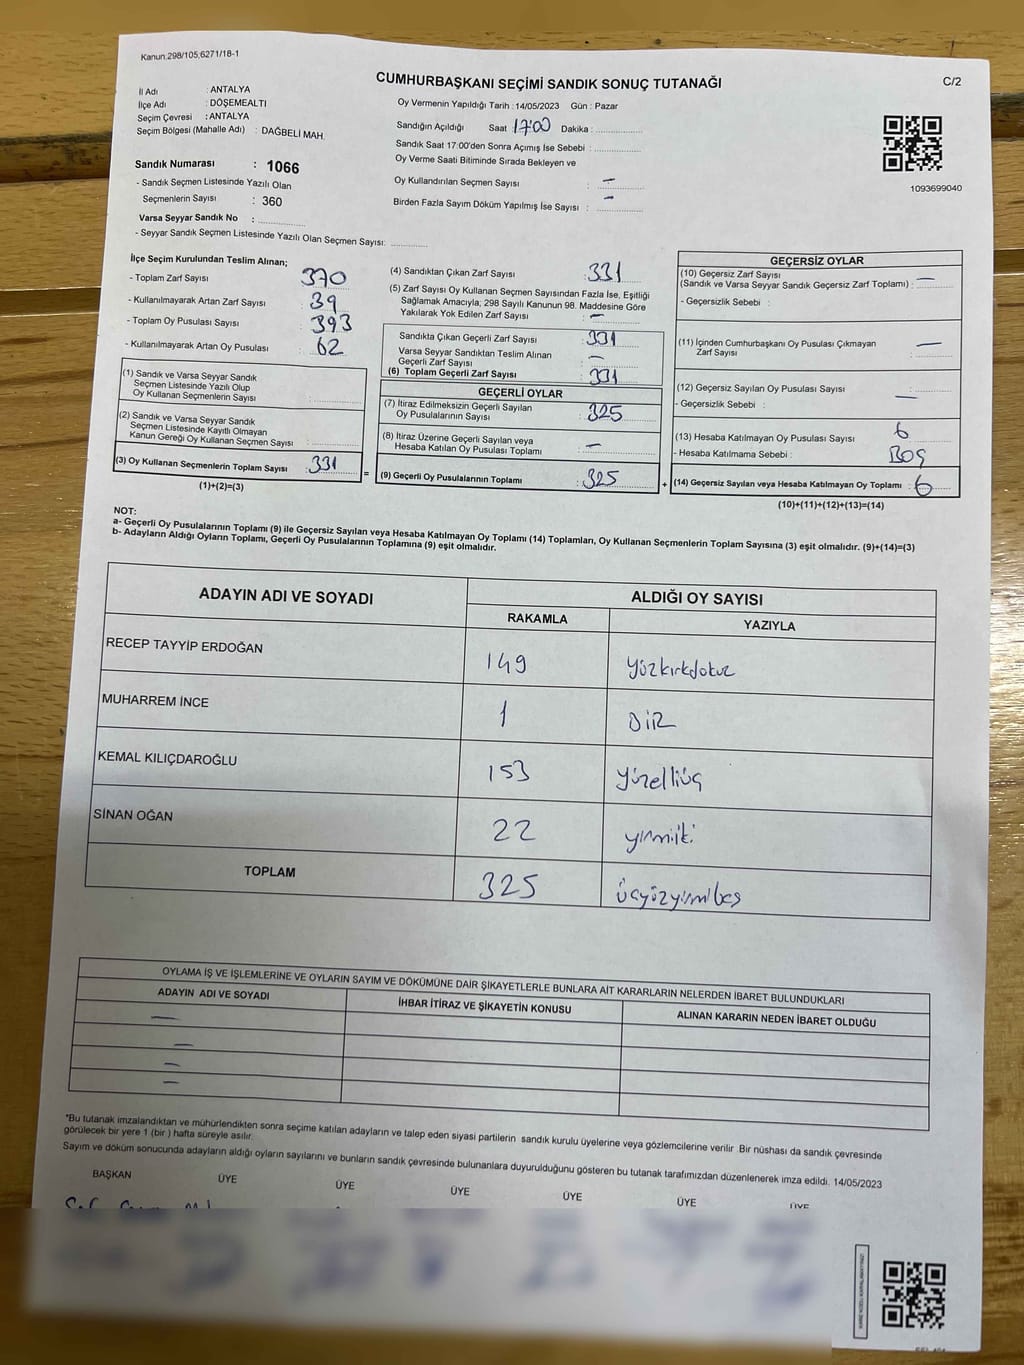 Kanun:298/105;6271/18-1
CUMHURBAŞKANI SEÇİMİ SANDIK SONUÇ TUTANAĞI
C/2
İl Adı : ANTALYA
İlçe Adı : DÖŞEMEALTI
Seçim Çevresi : ANTALYA
Seçim Bölgesi (Mahalle Adı) : DAĞBELİ MAH.
Oy Vermenin Yapıldığı Tarih : 14/05/2023 Gün : Pazar
Sandığın Açıldığı Saat 17:00 Dakika :
Sandık Saat 17:00'den Sonra Açımış İse Sebebi :
Oy Verme Saati Bitiminde Sırada Bekleyen ve
Oy Kullandırılan Seçmen Sayısı : —
Birden Fazla Sayım Döküm Yapılmış İse Sayısı : —
1093699040
Sandık Numarası : 1066
- Sandık Seçmen Listesinde Yazılı Olan
Seçmenlerin Sayısı : 360
Varsa Seyyar Sandık No :
- Seyyar Sandık Seçmen Listesinde Yazılı Olan Seçmen Sayısı:
İlçe Seçim Kurulundan Teslim Alınan;
- Toplam Zarf Sayısı : 370
- Kullanılmayarak Artan Zarf Sayısı : 39
- Toplam Oy Pusulası Sayısı : 393
- Kullanılmayarak Artan Oy Pusulası : 62
(1) Sandık ve Varsa Seyyar Sandık
Seçmen Listesinde Yazılı Olup
Oy Kullanan Seçmenlerin Sayısı :
(2) Sandık ve Varsa Seyyar Sandık
Seçmen Listesinde Kayıtlı Olmayan
Kanun Gereği Oy Kullanan Seçmen Sayısı :
(3) Oy Kullanan Seçmenlerin Toplam Sayısı : 331
(1)+(2)=(3)
=
(4) Sandıktan Çıkan Zarf Sayısı : 331
(5) Zarf Sayısı Oy Kullanan Seçmen Sayısından Fazla İse, Eşitliği
Sağlamak Amacıyla; 298 Sayılı Kanunun 98. Maddesine Göre
Yakılarak Yok Edilen Zarf Sayısı : —
Sandıkta Çıkan Geçerli Zarf Sayısı : 331
Varsa Seyyar Sandıktan Teslim Alınan
Geçerli Zarf Sayısı : —
(6) Toplam Geçerli Zarf Sayısı : 331
GEÇERLİ OYLAR
(7) İtiraz Edilmeksizin Geçerli Sayılan
Oy Pusulalarının Sayısı : 325
(8) İtiraz Üzerine Geçerli Sayılan veya
Hesaba Katılan Oy Pusulası Toplamı : —
(9) Geçerli Oy Pusulalarının Toplamı : 325
+
GEÇERSİZ OYLAR
(10) Geçersiz Zarf Sayısı
(Sandık ve Varsa Seyyar Sandık Geçersiz Zarf Toplamı) : —
- Geçersizlik Sebebi :
(11) İçinden Cumhurbaşkanı Oy Pusulası Çıkmayan
Zarf Sayısı : —
(12) Geçersiz Sayılan Oy Pusulası Sayısı : —
- Geçersizlik Sebebi :
(13) Hesaba Katılmayan Oy Pusulası Sayısı : 6
- Hesaba Katılmama Sebebi : BOŞ
(14) Geçersiz Sayılan veya Hesaba Katılmayan Oy Toplamı : 6
(10)+(11)+(12)+(13)=(14)
NOT:
a- Geçerli Oy Pusulalarının Toplamı (9) ile Geçersiz Sayılan veya Hesaba Katılmayan Oy Toplamı (14) Toplamları, Oy Kullanan Seçmenlerin Toplam Sayısına (3) eşit olmalıdır. (9)+(14)=(3)
b- Adayların Aldığı Oyların Toplamı, Geçerli Oy Pusulalarının Toplamına (9) eşit olmalıdır.
ADAYIN ADI VE SOYADI
ALDIĞI OY SAYISI
RAKAMLA YAZIYLA
RECEP TAYYİP ERDOĞAN 149 yüzkırkdokuz
MUHARREM İNCE 1 BİR
KEMAL KILIÇDAROĞLU 153 yüzelliüç
SİNAN OĞAN 22 yirmiiki
TOPLAM 325 üçyüzyirmibeş
OYLAMA İŞ VE İŞLEMLERİNE VE OYLARIN SAYIM VE DÖKÜMÜNE DAİR ŞİKAYETLERLE BUNLARA AİT KARARLARIN NELERDEN İBARET BULUNDUKLARI
ADAYIN ADI VE SOYADI İHBAR İTİRAZ VE ŞİKAYETİN KONUSU ALINAN KARARIN NEDEN İBARET OLDUĞU
—
—
—
—
*Bu tutanak imzalandıktan ve mühürlendikten sonra seçime katılan adayların ve talep eden siyasi partilerin sandık kurulu üyelerine veya gözlemcilerine verilir. Bir nüshası da sandık çevresinde
görülecek bir yere 1 (bir) hafta süreyle asılır.
Sayım ve döküm sonucunda adayların aldığı oyların sayılarını ve bunların sandık çevresinde bulunanlara duyurulduğunu gösteren bu tutanak tarafımızdan düzenlenerek imza edildi. 14/05/2023
BAŞKAN ÜYE ÜYE ÜYE ÜYE ÜYE ÜYE